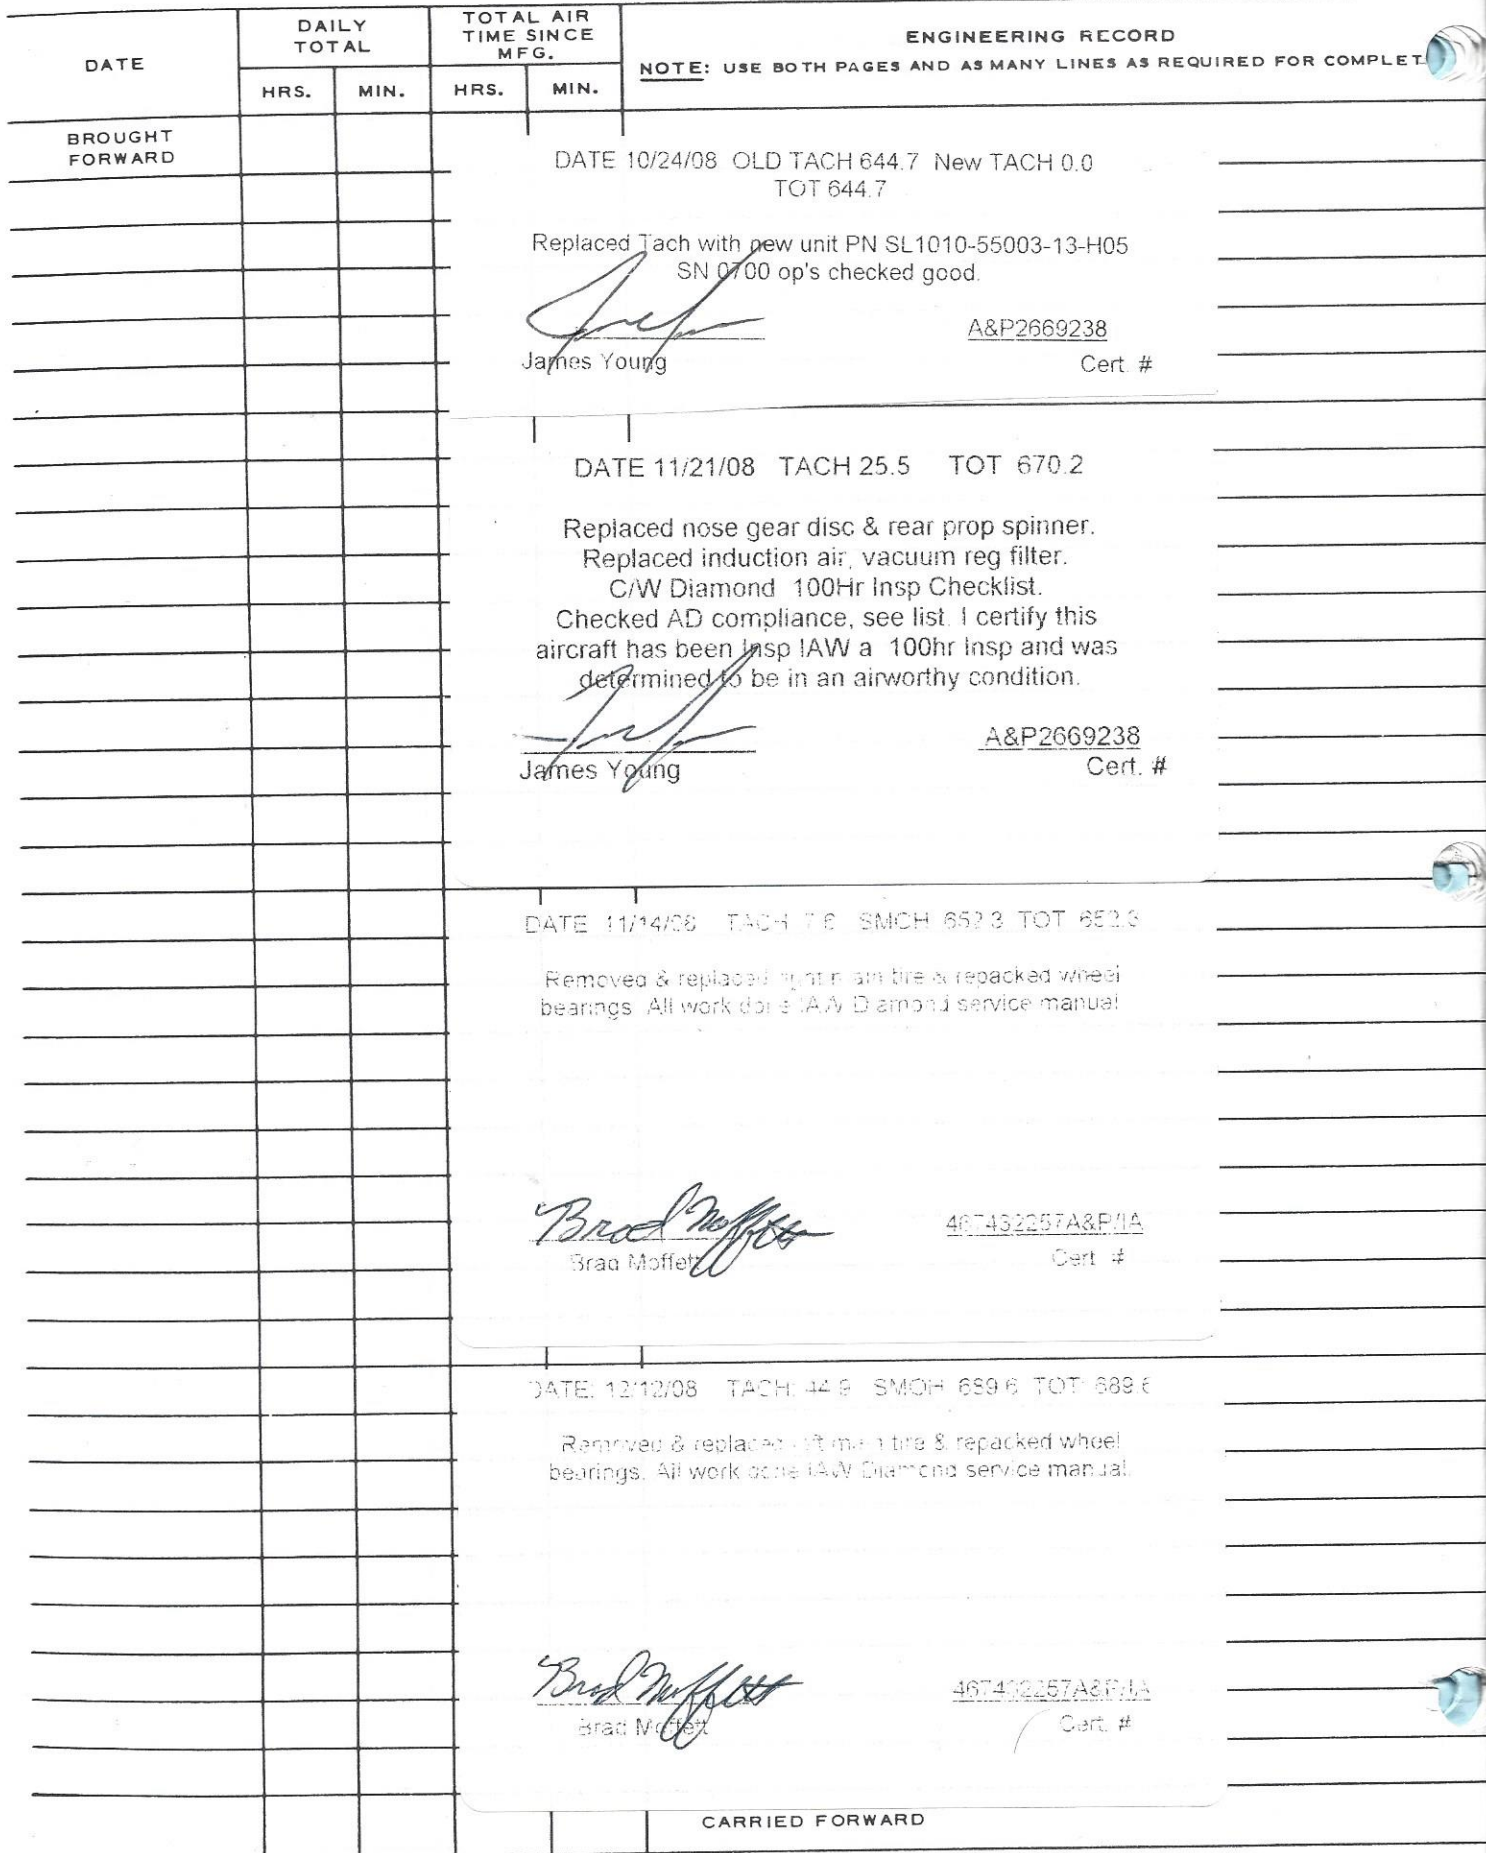 DATE
DAILY TOTAL
TOTAL AIR TIME SINCE MFG.
ENGINEERING RECORD
NOTE: USE BOTH PAGES AND AS MANY LINES AS REQUIRED FOR COMPLET
HRS. MIN. HRS. MIN.
BROUGHT FORWARD
DATE 10/24/08 OLD TACH 644.7 New TACH 0.0
TOT 644.7
Replaced Tach with new unit PN SL1010-55003-13-H05
SN 0700 op's checked good.
A&P2669238
James Young Cert. #
DATE 11/21/08 TACH 25.5 TOT 670.2
Replaced nose gear disc & rear prop spinner.
Replaced induction air, vacuum reg filter.
C/W Diamond 100Hr Insp Checklist.
Checked AD compliance, see list. I certify this
aircraft has been Insp IAW a 100hr Insp and was
determined to be in an airworthy condition.
A&P2669238
James Young Cert. #
DATE 11/14/08 TACH 7.6 SMOH 652.3 TOT 652.3
Removed & replaced right main tire & repacked wheel
bearings. All work done IAW Diamond service manual
Brad Moffett A&P/IA
Brad Moffett Cert. #
DATE: 12/12/08 TACH: 44.9 SMOH 689.6 TOT: 689.6
Removed & replaced left main tire & repacked wheel
bearings. All work done IAW Diamond service manual.
Brad Moffett A&P/IA
Brad Moffett Cert. #
CARRIED FORWARD